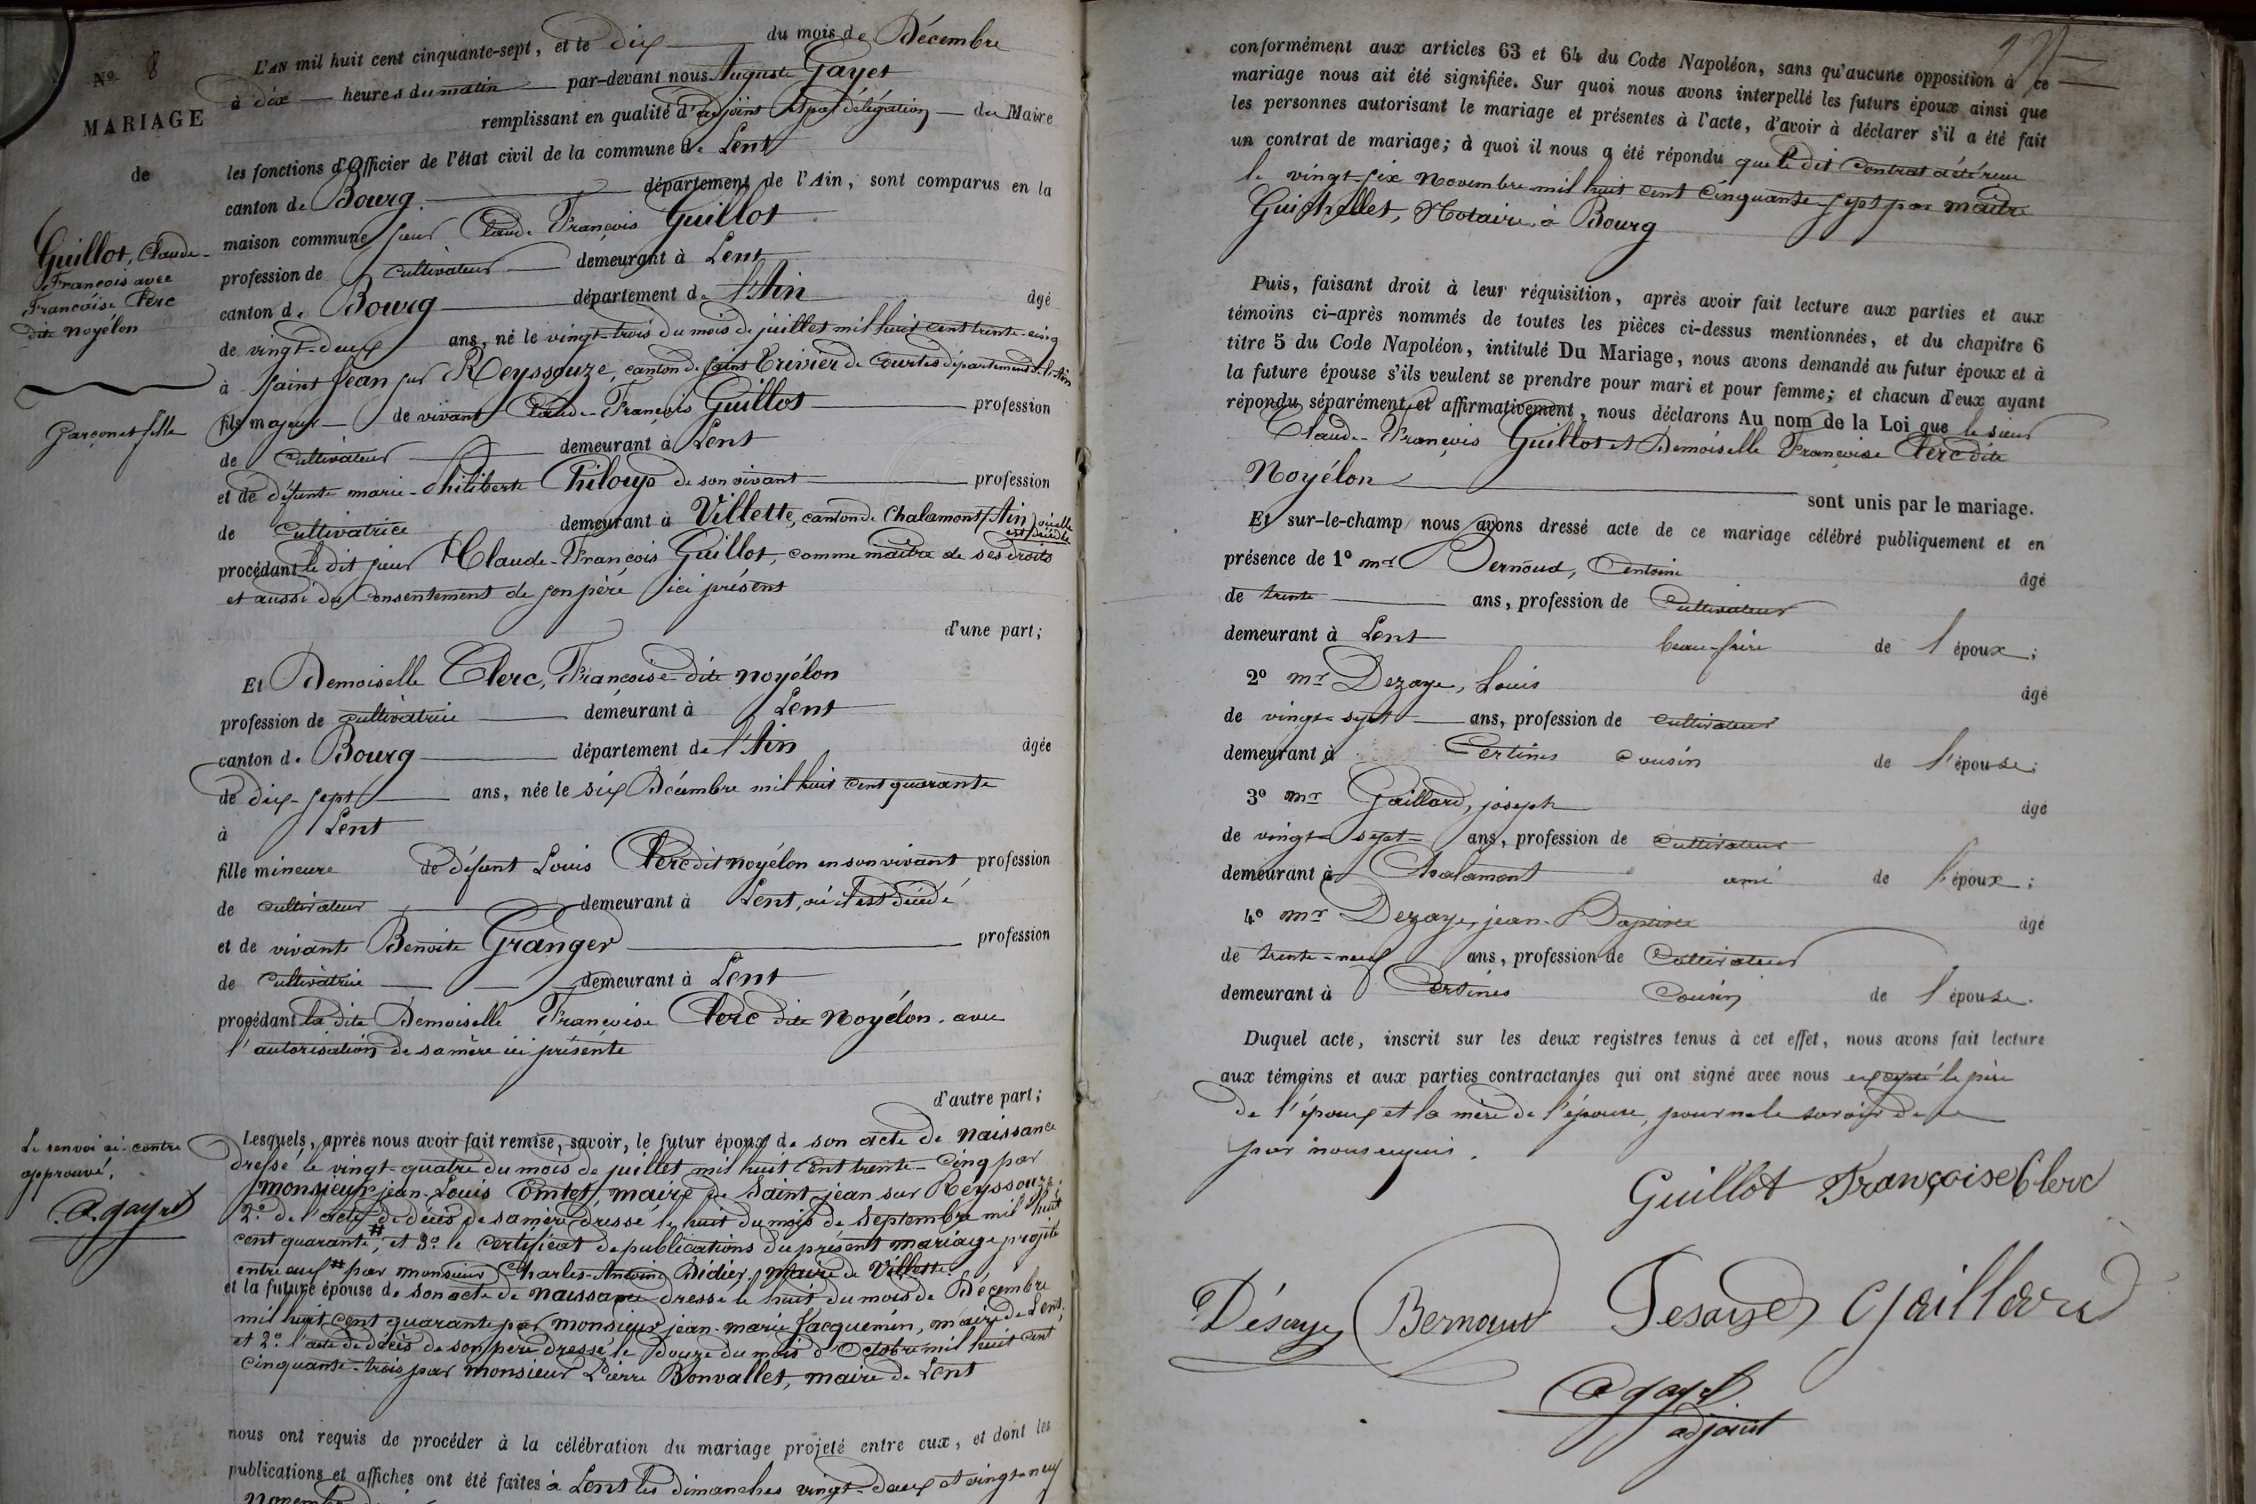 N° 8
MARIAGE
de
Guillot, Claude-
François avec
Françoise Clerc
dite noyélon
Garçon et fille
L'AN mil huit cent cinquante-sept, et le dix du mois de Décembre
à dix heures du matin par-devant nous Auguste Gayet
remplissant en qualité d'adjoint et par délégation du Maire
les fonctions d'Officier de l'état civil de la commune de Lent
canton de Bourg département de l'Ain, sont comparus en la
maison commune sieur Claude François Guillot
profession de cultivateur demeurant à Lent
canton de Bourg département de l'Ain âgé
de vingt-deux ans, né le vingt-trois du mois de juillet mil huit cent trente-cinq
à Saint Jean sur Reyssouze, canton de Saint Trivier de Courtes département de l'Ain
fils majeur de vivant Claude-François Guillot profession
de cultivateur demeurant à Lent
et de défunte marie-Philiberte Chiloup de son vivant profession
de cultivatrice demeurant à Villette, canton de Chalamont, Ain où elle
est décédée
procédant le dit sieur Claude-François Guillot, comme maître de ses droits
et aussi du consentement de son père ici présent
d'une part;
Et Demoiselle Clerc, Françoise dite noyélon
profession de cultivatrice demeurant à Lent
canton de Bourg département de l'Ain âgée
de dix-sept ans, née le six Décembre mil huit cent quarante
à Lent
fille mineure de défunt Louis Clerc dit noyélon en son vivant profession
de cultivateur demeurant à Lent, où il est décédé
et de vivante Benoite Granger profession
de cultivatrice demeurant à Lent
procédant la dite Demoiselle Françoise Clerc dite noyélon avec
l'autorisation de sa mère ici présente
d'autre part;
Le renvoi ci-contre
approuvé,
A. gayet
Lesquels, après nous avoir fait remise, savoir, le futur époux de son acte de naissance
dressé le vingt-quatre du mois de juillet mil huit cent trente-cinq par
monsieur jean-Louis Comtet, maire de Saint jean sur Reyssouze;
2° de l'acte de décès de sa mère dressé le huit du mois de Septembre mil huit
cent quarante #, et 3° le certificat de publications du présent mariage projeté
entre eux # par monsieur Charles-Antoine Didier, maire de Villette.
et la future épouse de son acte de naissance dressé le huit du mois de Décembre
mil huit cent quarante par monsieur jean-marie Jacquemin, maire de Lent;
et 2° l'acte de décès de son père dressé le douze du mois d'Octobre mil huit cent
cinquante-trois par monsieur Pierre Bonvallet, maire de Lent
nous ont requis de procéder à la célébration du mariage projeté entre eux, et dont les
publications et affiches ont été faites à Lent les dimanches vingt-deux et vingt-neuf
novembre
conformément aux articles 63 et 64 du Code Napoléon, sans qu'aucune opposition à ce
mariage nous ait été signifiée. Sur quoi nous avons interpellé les futurs époux ainsi que
les personnes autorisant le mariage et présentes à l'acte, d'avoir à déclarer s'il a été fait
un contrat de mariage; à quoi il nous a été répondu que le dit contrat a été reçu
le vingt-six novembre mil huit cent cinquante sept par maître
Guichellet, Notaire, à Bourg
Puis, faisant droit à leur réquisition, après avoir fait lecture aux parties et aux
témoins ci-après nommés de toutes les pièces ci-dessus mentionnées, et du chapitre 6
titre 5 du Code Napoléon, intitulé Du Mariage, nous avons demandé au futur époux et à
la future épouse s'ils veulent se prendre pour mari et pour femme; et chacun d'eux ayant
répondu séparément et affirmativement, nous déclarons Au nom de la Loi que le sieur
Claude-François Guillot et Demoiselle Françoise Clerc dite
Noyélon sont unis par le mariage.
Et sur-le-champ nous avons dressé acte de ce mariage célébré publiquement et en
présence de 1° mr Bernoud, Antoine âgé
de trente ans, profession de cultivateur
demeurant à Lent beau-frère de l'époux;
2° mr Dezaye, Louis âgé
de vingt-sept ans, profession de cultivateur
demeurant à Certines cousin de l'épouse;
3° mr Gaillard, joseph âgé
de vingt-sept ans, profession de cultivateur
demeurant à Chalamont ami de l'époux;
4° mr Dezaye, jean-Baptiste âgé
de trente-neuf ans, profession de cultivateur
demeurant à Certines Cousin de l'épouse.
Duquel acte, inscrit sur les deux registres tenus à cet effet, nous avons fait lecture
aux témoins et aux parties contractantes qui ont signé avec nous excepté le père
de l'époux et la mère de l'épouse, pour ne le savoir de ce
par nous requis.
Guillot Françoise Clerc
Désaye Bernoud Desaye Gaillard
A gayet
adjoint